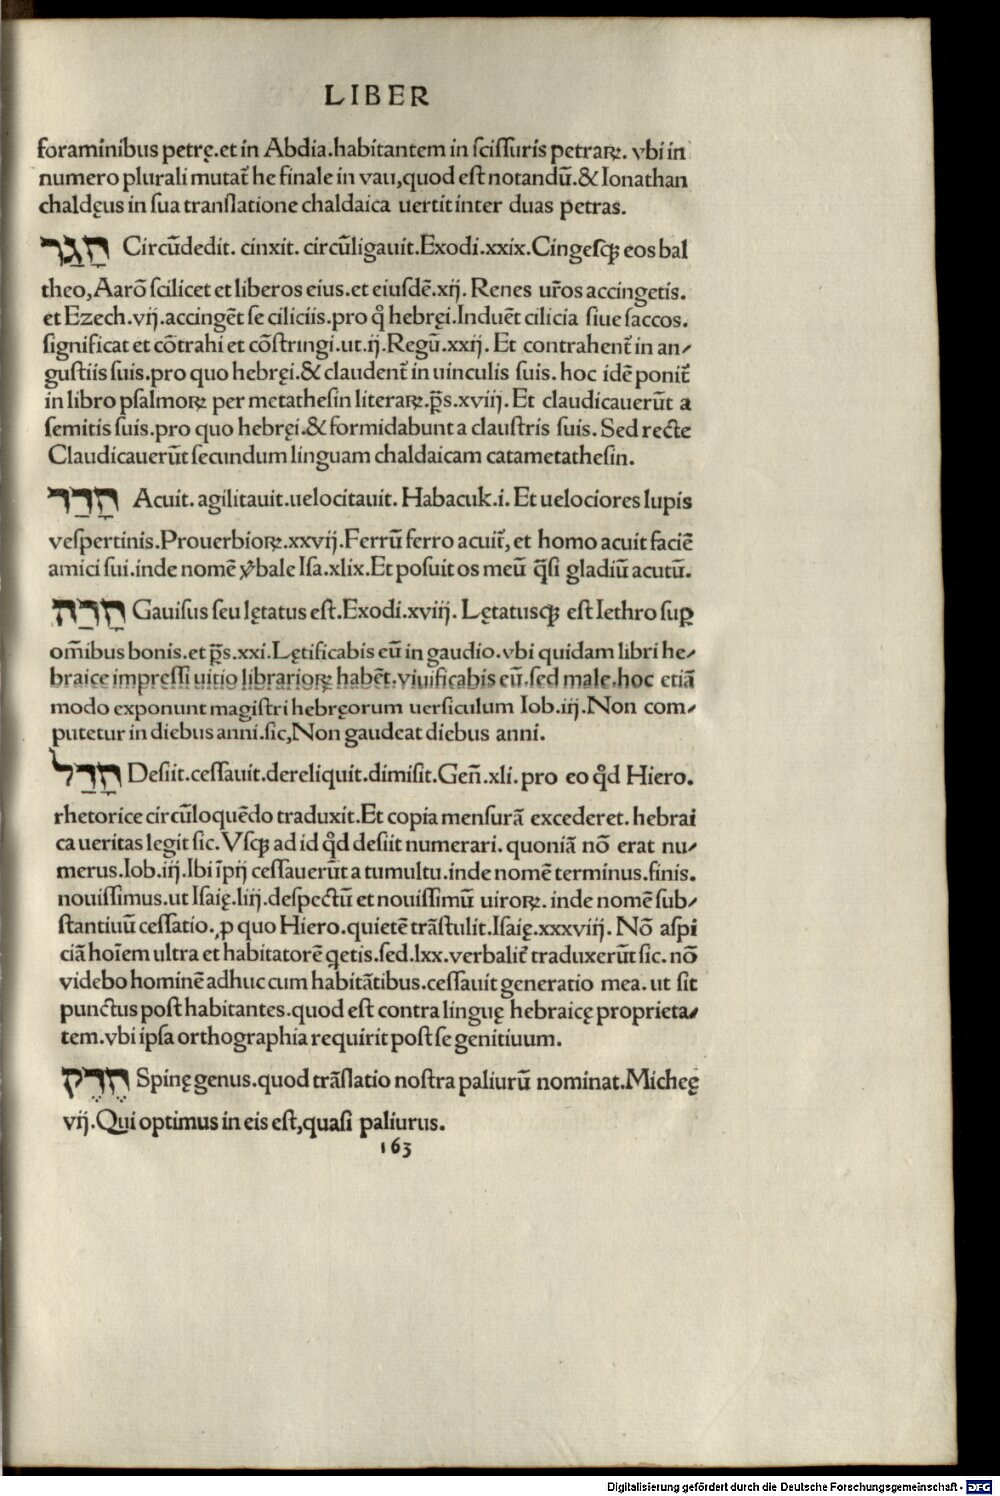 LIBER
foraminibus petrę.et in Abdia.habitantem in ſciſſuris petraꝝ. vbi in
numero plurali mutat᷑ he finale in vau,quod eſt notandū.&Ionathan
chaldęus in ſua tranſlatione chaldaica uertit inter duas petras.
חָגַר Circūdedit. cinxit. circūligauit.Exodi.xxix.Cingeſqꝫ eos bal
theo,Aarō ſcilicet et liberos eius.et eiuſdē.xij. Renes ur̄os accingetis.
et Ezech.vij.accingēt ſe ciliciis.pro ꝙ hebręi.Induēt cilicia ſiue ſaccos.
ſignificat et cōtrahi et cōſtringi.ut.ij.Regū.xxij. Et contrahent᷑ in an⸗
guſtiis ſuis.pro quo hebręi.& claudent᷑ in uinculis ſuis. hoc idē ponit᷑
in libro pſalmoꝝ per metatheſin literaꝝ.p̄s.xviij. Et claudicauerūt a
ſemitis ſuis.pro quo hebręi.& formidabunt a clauſtris ſuis. Sed recte
Claudicauerūt ſecundum linguam chaldaicam catametatheſin.
חָדַד Acuit. agilitauit.uelocitauit. Habacuk.i. Et uelociores lupis
veſpertinis.Prouerbioꝝ.xxvij.Ferrū ferro acuit᷑, et homo acuit faciē
amici ſui.inde nomē ꝟbale Iſa.xlix.Et poſuit os meū q̄ſi gladiū acutū.
חָדַה Gauiſus ſeu lętatus eſt.Exodi.xviij. Lętatuſqꝫ eſt Iethro ſuꝑ
om̄ibus bonis.et p̄s.xxi.Lętificabis eū in gaudio.vbi quidam libri he⸗
braice impreſſi uitio librarioꝝ habēt.viuificabis eū.ſed male.hoc etiā
modo exponunt magiſtri hebręorum uerſiculum Iob.iij.Non com⸗
putetur in diebus anni.ſic,Non gaudeat diebus anni.
חָדַל Deſiit.ceſſauit.dereliquit.dimiſit.Geñ.xli. pro eo ꝙd Hiero.
rhetorice circūloquēdo traduxit.Et copia menſurā excederet. hebrai
ca ueritas legit ſic. Vſqꝫ ad id ꝙd deſiit numerari. quoniā nō erat nu⸗
merus.Iob.iij.Ibi īpij ceſſauerūt a tumultu.inde nomē terminus.finis.
nouiſſimus.ut Iſaię.liij.deſpectū et nouiſſimū uiroꝝ. inde nomē ſub⸗
ſtantiuū ceſſatio.ꝓ quo Hiero.quietē trāſtulit.Iſaię.xxxviij. Nō aſpi
ciā hoīem ultra et habitatorē qetis.ſed.lxx.verbalit᷑ traduxerūt ſic. nō
videbo hominē adhuc cum habitātibus.ceſſauit generatio mea. ut ſit
punctus poſt habitantes.quod eſt contra linguę hebraicę proprieta⸗
tem.vbi ipſa orthographia requirit poſt ſe genitiuum.
חֶדֶק Spinę genus.quod trāſlatio noſtra paliurū nominat.Micheę
vij.Qui optimus in eis eſt,quaſi paliurus.
163
Digitalisierung gefördert durch die Deutsche Forschungsgemeinschaft - DFG